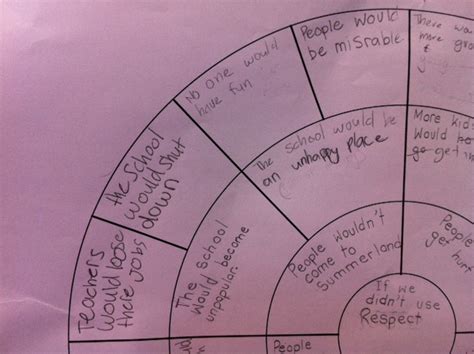 No one would
have fun
People would
be misrable
There
more
the School
would shut
down
Teachers
would loose
theie Jobs
The school would be
an unhappy place
More
would
go get
The School
would become
unpopular.
People wouldn't
come to
Summerland
People
get
If we
didn't use
Respect
People